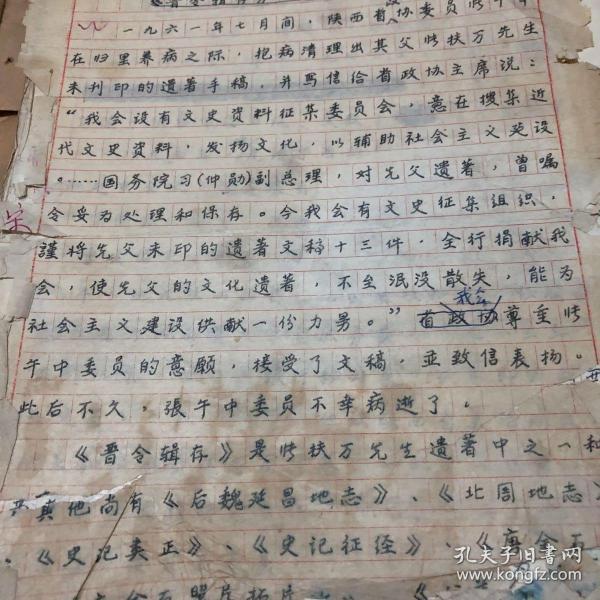 一九六一年七月间，陕西省协委员张午中
在归里养病之际，抱病清理出其父张扶万先生
未刊印的遗著手稿，并写信给省政协主席说：
“我会设有文史资料征集委员会，意在搜集近
代文史资料，发扬文化，以辅助社会主义建设
。……国务院习(仲勋)副总理，对先父遗著，曾嘱
令妥为处理和保存。今我会有文史征集组织，
谨将先父未印的遗著文稿十三件，全行捐献我
会，使先父的文化遗著，不至泯没散失，能为
我会
社会主义建设供献一份力易。”省政协尊重张
午中委员的意愿，接受了文稿，並致信表扬。
此后不久，張午中委员不幸病逝了。
《晋令辑存》是张扶万先生遗著中之一种
其他尚有《后魏延昌地志》、《北周地志》
、《史记类正》、《史记征经》、《唐会
孔夫子旧书网
www.kongfz.com